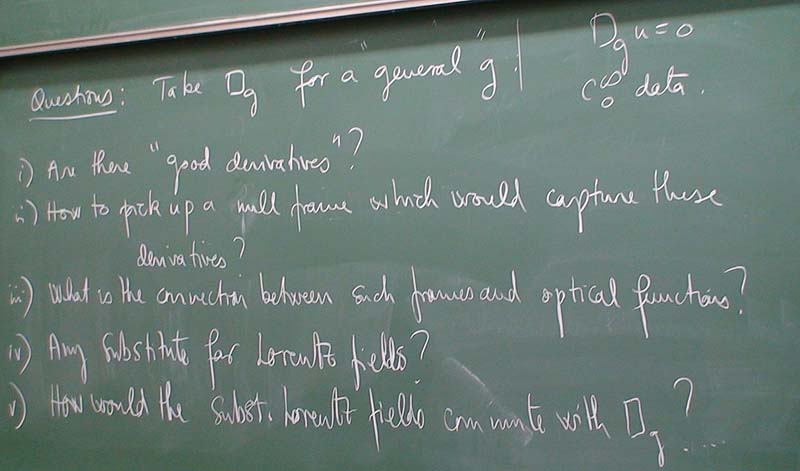 Questions: Take □g for a "general" g. □g u = 0
C₀^∞ data.
i) Are there "good derivatives"?
ii) How to pick up a null frame which would capture these
derivatives?
iii) What is the connection between such frames and optical functions?
iv) Any substitute for Lorentz fields?
v) How would the subst. Lorentz fields commute with □g ? ....